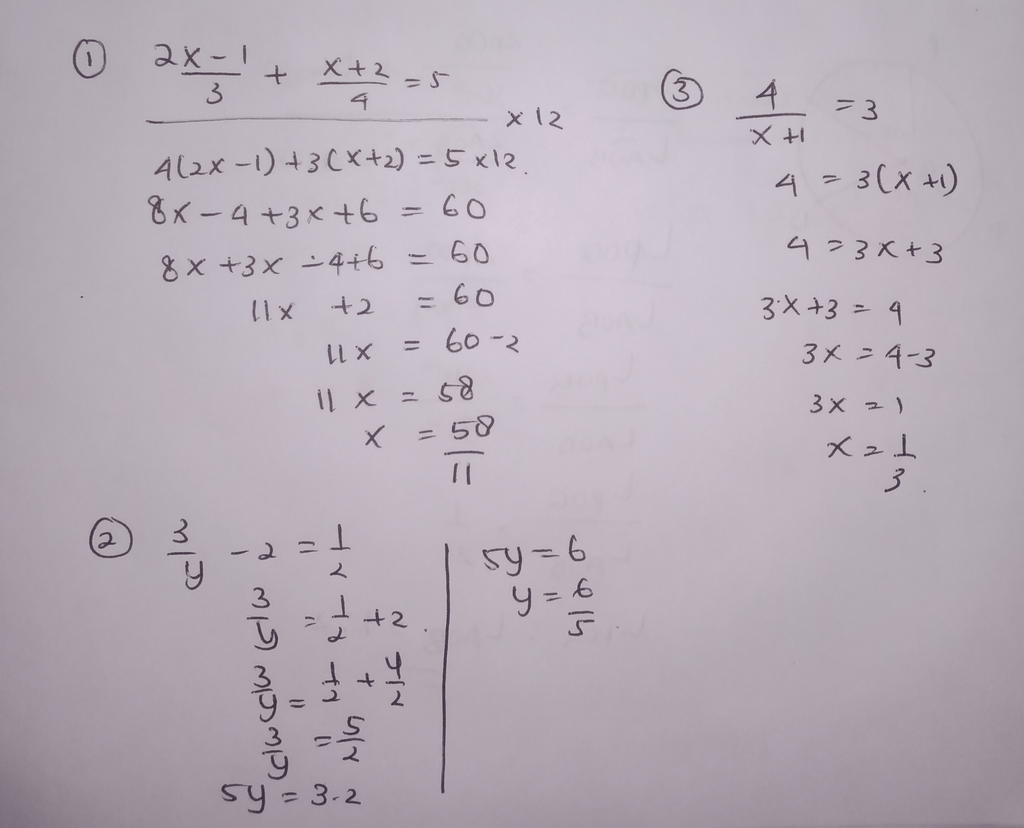 ① (2x-1)/3 + (x+2)/4 = 5
x 12
4(2x-1)+3(x+2) = 5 x12.
8x-4+3x+6 = 60
8x+3x-4+6 = 60
11x +2 = 60
11x = 60-2
11x = 58
x = 58/11
② 3/y - 2 = 1/2
3/y = 1/2 +2.
3/y = 1/2 + 4/2
3/y = 5/2
5y = 3.2
5y = 6
y = 6/5.
③ 4/(x+1) = 3
4 = 3(x+1)
4 = 3x+3
3x+3 = 4
3x = 4-3
3x = 1
x = 1/3.